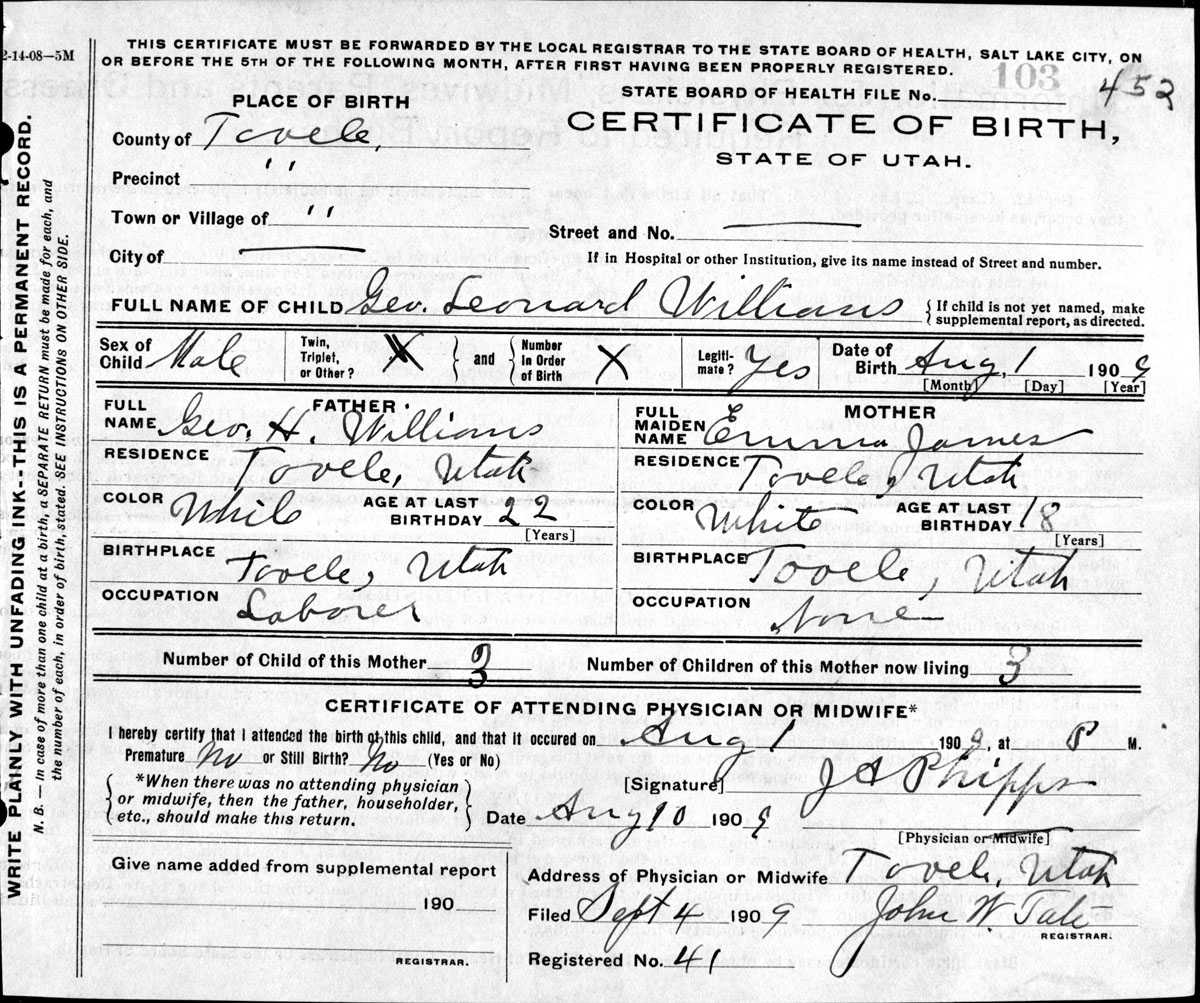 2-14-08—5M
THIS CERTIFICATE MUST BE FORWARDED BY THE LOCAL REGISTRAR TO THE STATE BOARD OF HEALTH, SALT LAKE CITY, ON
OR BEFORE THE 5TH OF THE FOLLOWING MONTH, AFTER FIRST HAVING BEEN PROPERLY REGISTERED.
103
452
PLACE OF BIRTH
STATE BOARD OF HEALTH FILE No.
County of Tooele,
CERTIFICATE OF BIRTH,
STATE OF UTAH.
Precinct "
Town or Village of "
Street and No. —
City of —
If in Hospital or other Institution, give its name instead of Street and number.
FULL NAME OF CHILD Geo. Leonard Williams { If child is not yet named, make supplemental report, as directed.
Sex of Child Male Twin, Triplet, or Other? X } and { Number in Order of Birth X Legiti-mate? Yes Date of Birth Aug, 1 1909
[Month] [Day] [Year]
FATHER
FULL NAME Geo. H. Williams
RESIDENCE Tooele, Utah
COLOR White AGE AT LAST BIRTHDAY 22
[Years]
BIRTHPLACE Tooele, Utah
OCCUPATION Laborer
MOTHER
FULL MAIDEN NAME Emma James
RESIDENCE Tooele, Utah
COLOR White AGE AT LAST BIRTHDAY 18
[Years]
BIRTHPLACE Tooele, Utah
OCCUPATION None
Number of Child of this Mother 3 Number of Children of this Mother now living 3
CERTIFICATE OF ATTENDING PHYSICIAN OR MIDWIFE*
I hereby certify that I attended the birth of this child, and that it occured on Aug 1 1909, at P M.
Premature No or Still Birth? No (Yes or No)
*When there was no attending physician
or midwife, then the father, householder,
etc., should make this return.
[Signature] J A Phipps
Date Aug 10 1909
[Physician or Midwife]
Give name added from supplemental report
190
REGISTRAR.
Address of Physician or Midwife Tooele, Utah
Filed Sept 4 1909 John W. Tate
REGISTRAR.
Registered No. 41
WRITE PLAINLY WITH UNFADING INK--THIS IS A PERMANENT RECORD.
N. B. — In case of more than one child at a birth, a SEPARATE RETURN must be made for each, and
the number of each, in order of birth, stated. SEE INSTRUCTIONS ON OTHER SIDE.